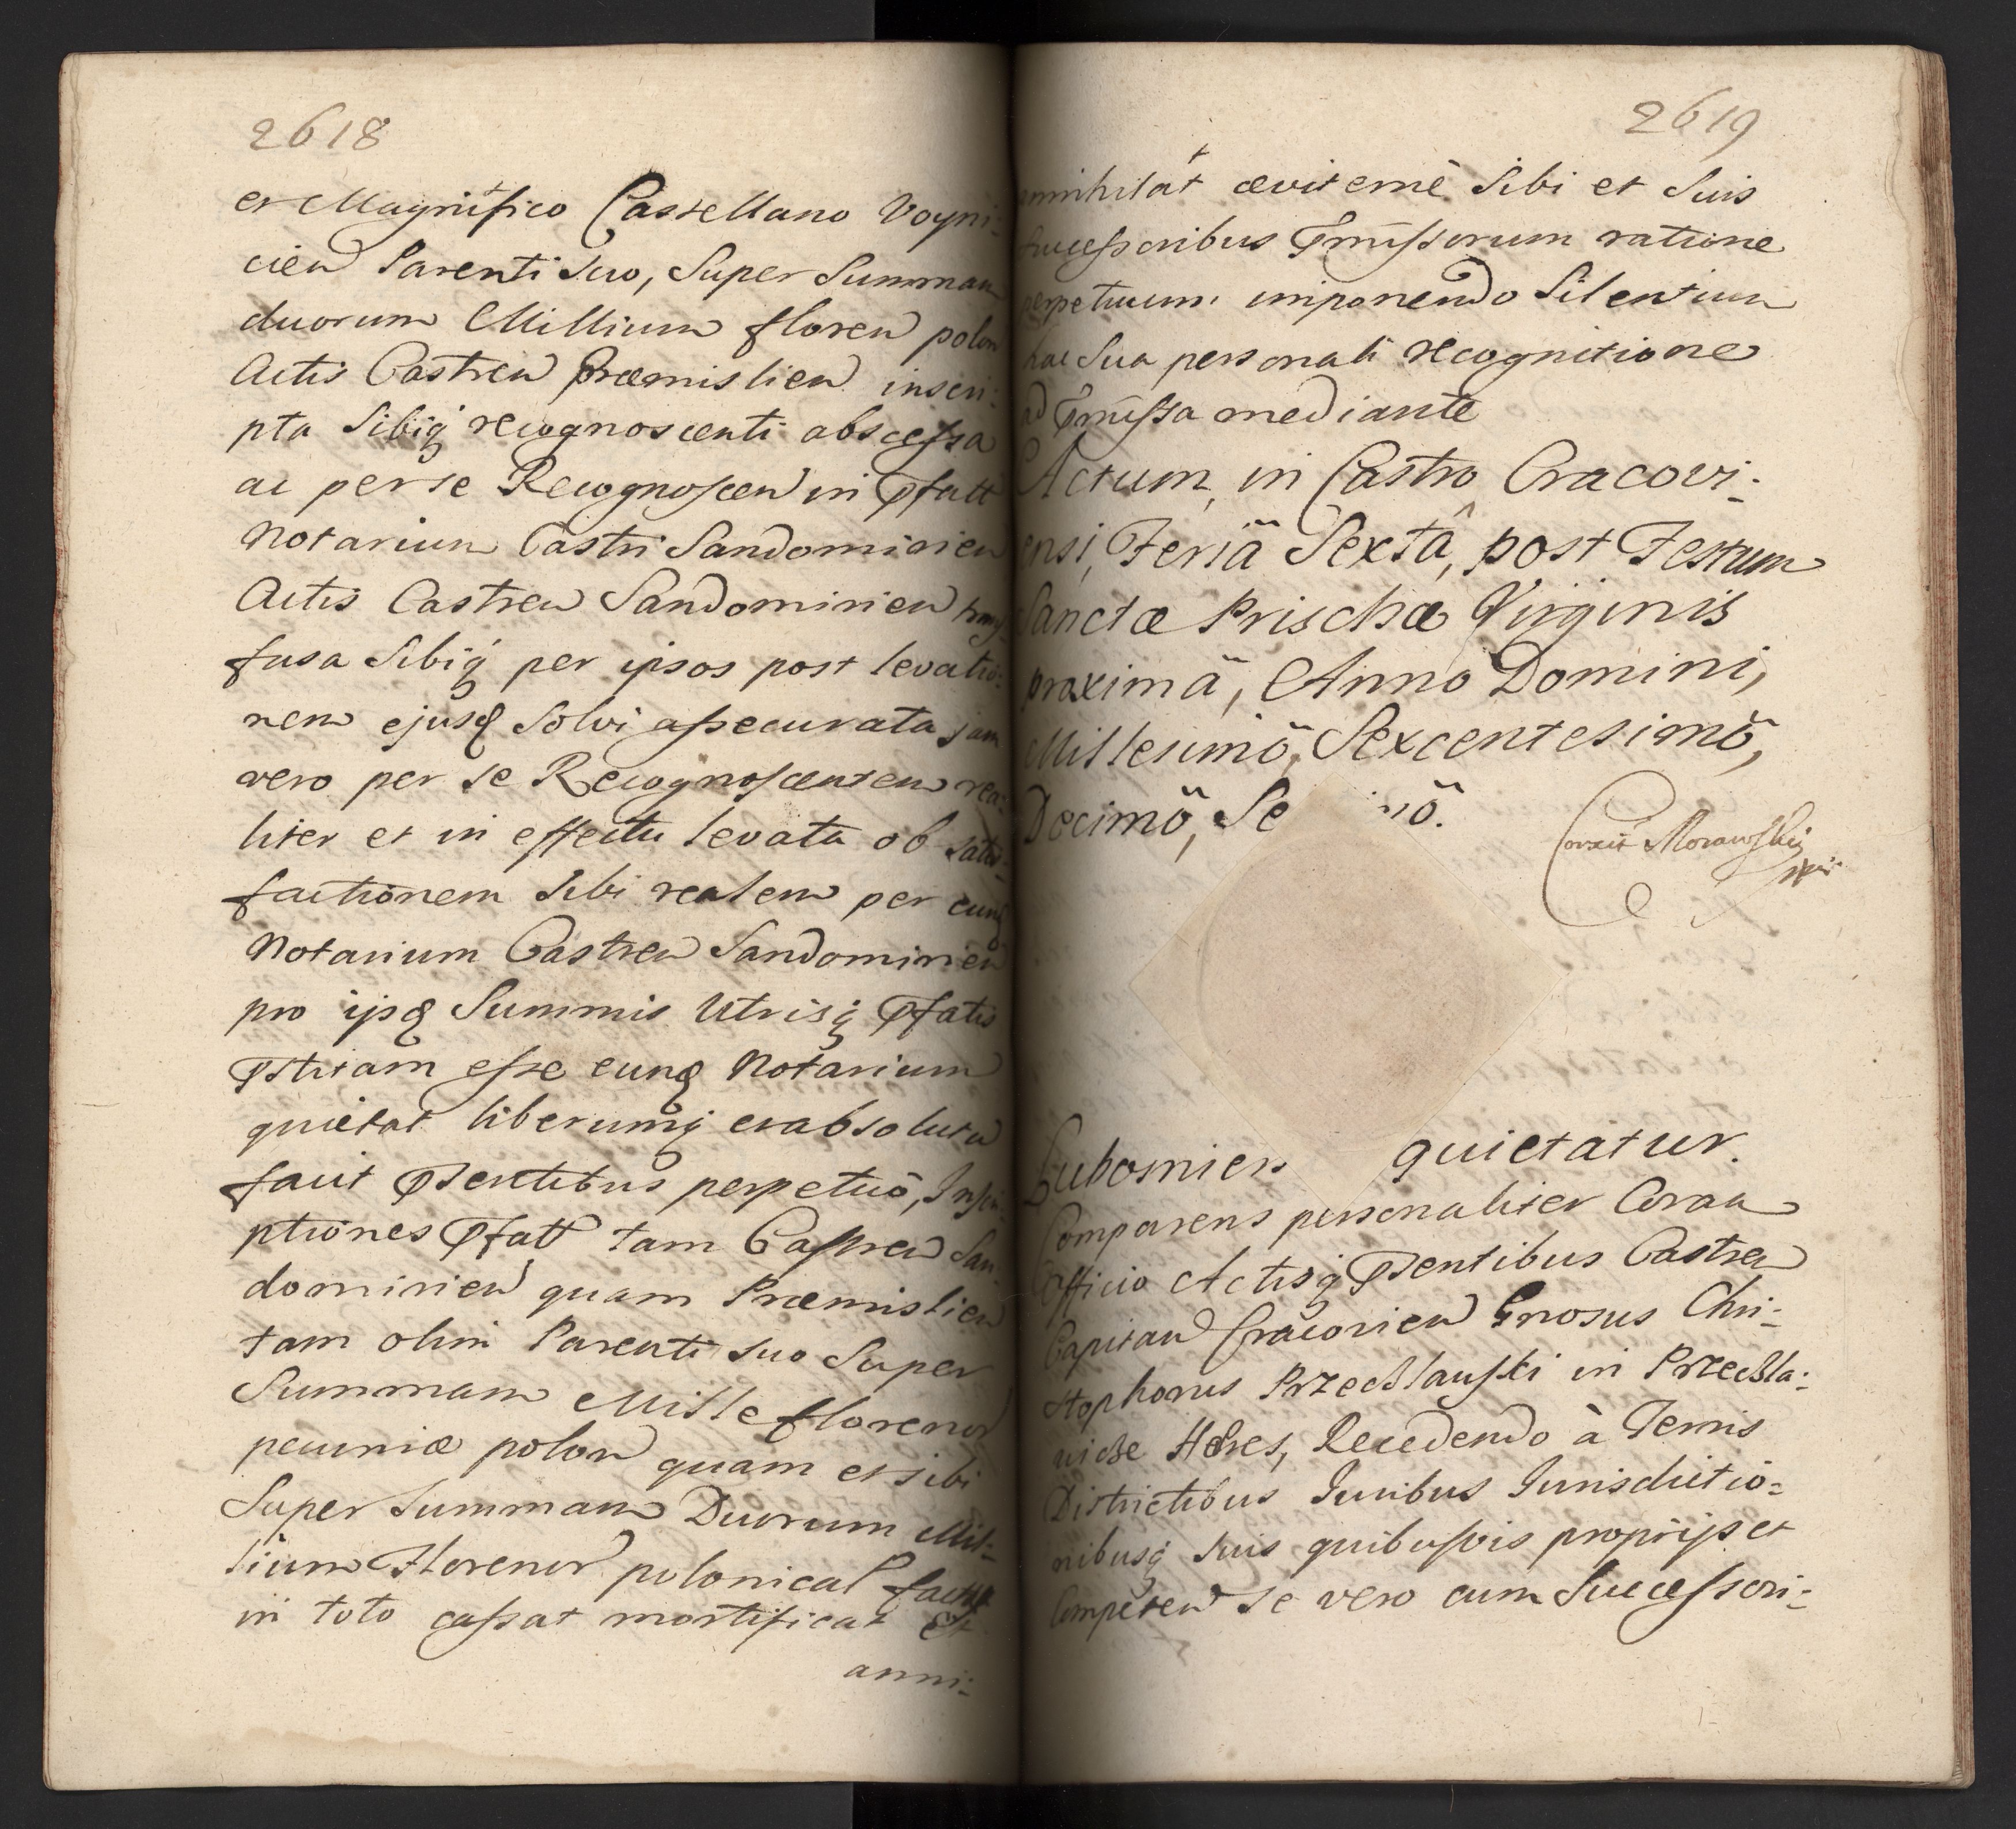 2618
et Magnifico Castellano Voyni:
cien Parenti suo, Super Summam
duorum Millium floren polon
Actis Castren Præmislien inscri:
pta Sibiq recognoscenti abscessa
ac per se Recognoscen in Pfatt
Notarium Castri Sandomirien
Actis Castren Sandomirien trans
fusa Sibiq per ipsos post levatio:
nem ejusd Solvi assecurata jam
vero per se Recognoscentem rea:
liter et in effectu levata ob satis:
factionem Sibi realem per eund
Notarium Castren Sandomirien
pro ipsis Summis Utrisq Pfatis
Pstitam esse eund Notarium
quietat liberumq et absolutu
facit Psentibus perpetuo, Inscri
ptiones Pfatt tam Castren San:
domirien quam Præmislien
tam olim Parenti suo Super
Summam Mille florenor
pecuniæ polon quam et sibi
Super Summam Duorum Mil:
lium Florenor polonical factas
in toto cassat mortificat Et
anni:
2619
annihilat æviterne Sibi et Suis
Successoribus Pmissorum ratione
perpetuum imponendo Silentium
hac Sua personali recognitione
ad Pmissa mediante
Actum in Castro Cracovi:
ensi, Feriâ Sextâ, post Festum
Sanctæ Prischæ Virginis
proximâ, Anno Domini,
Millesimô, Sexcentesimô,
Decimô, Se mô.
Correxit Morawski
Lubomien quietatur.
Comparens personaliter Coram
Officio Actisq Psentibus Castren
Capitan Cracovien Gnosus Chri:
stophorus Przecslauski in Przecsla:
uicze Hæres, Recedendo à Terris
Districtibus Juribus Jurisdictio=
nibusq suis quibusvis proprijs et
Competen se vero cum Successori: